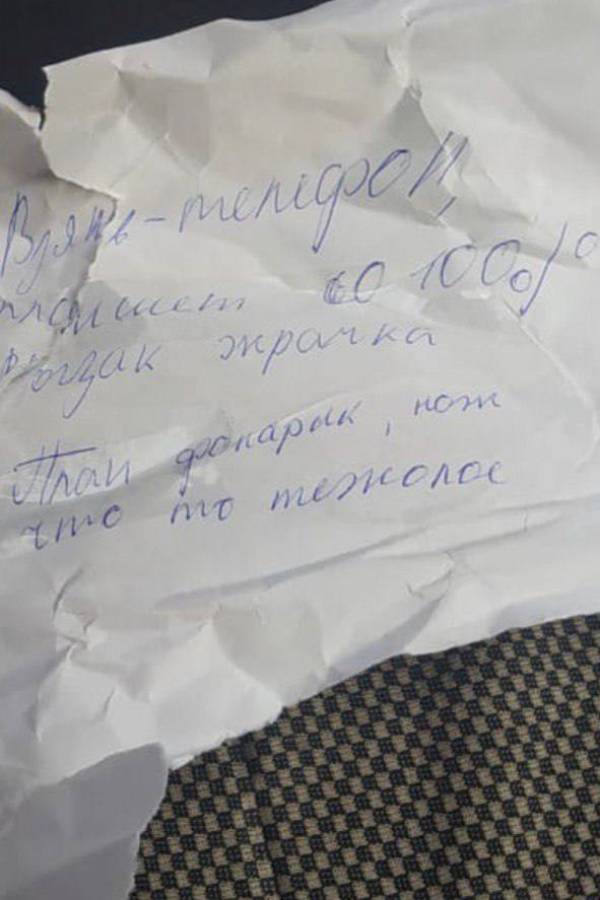 Взять - телефон,
планшет 60 100%
Рюгзак жрачка
План фонарык, нож
что то тежолое